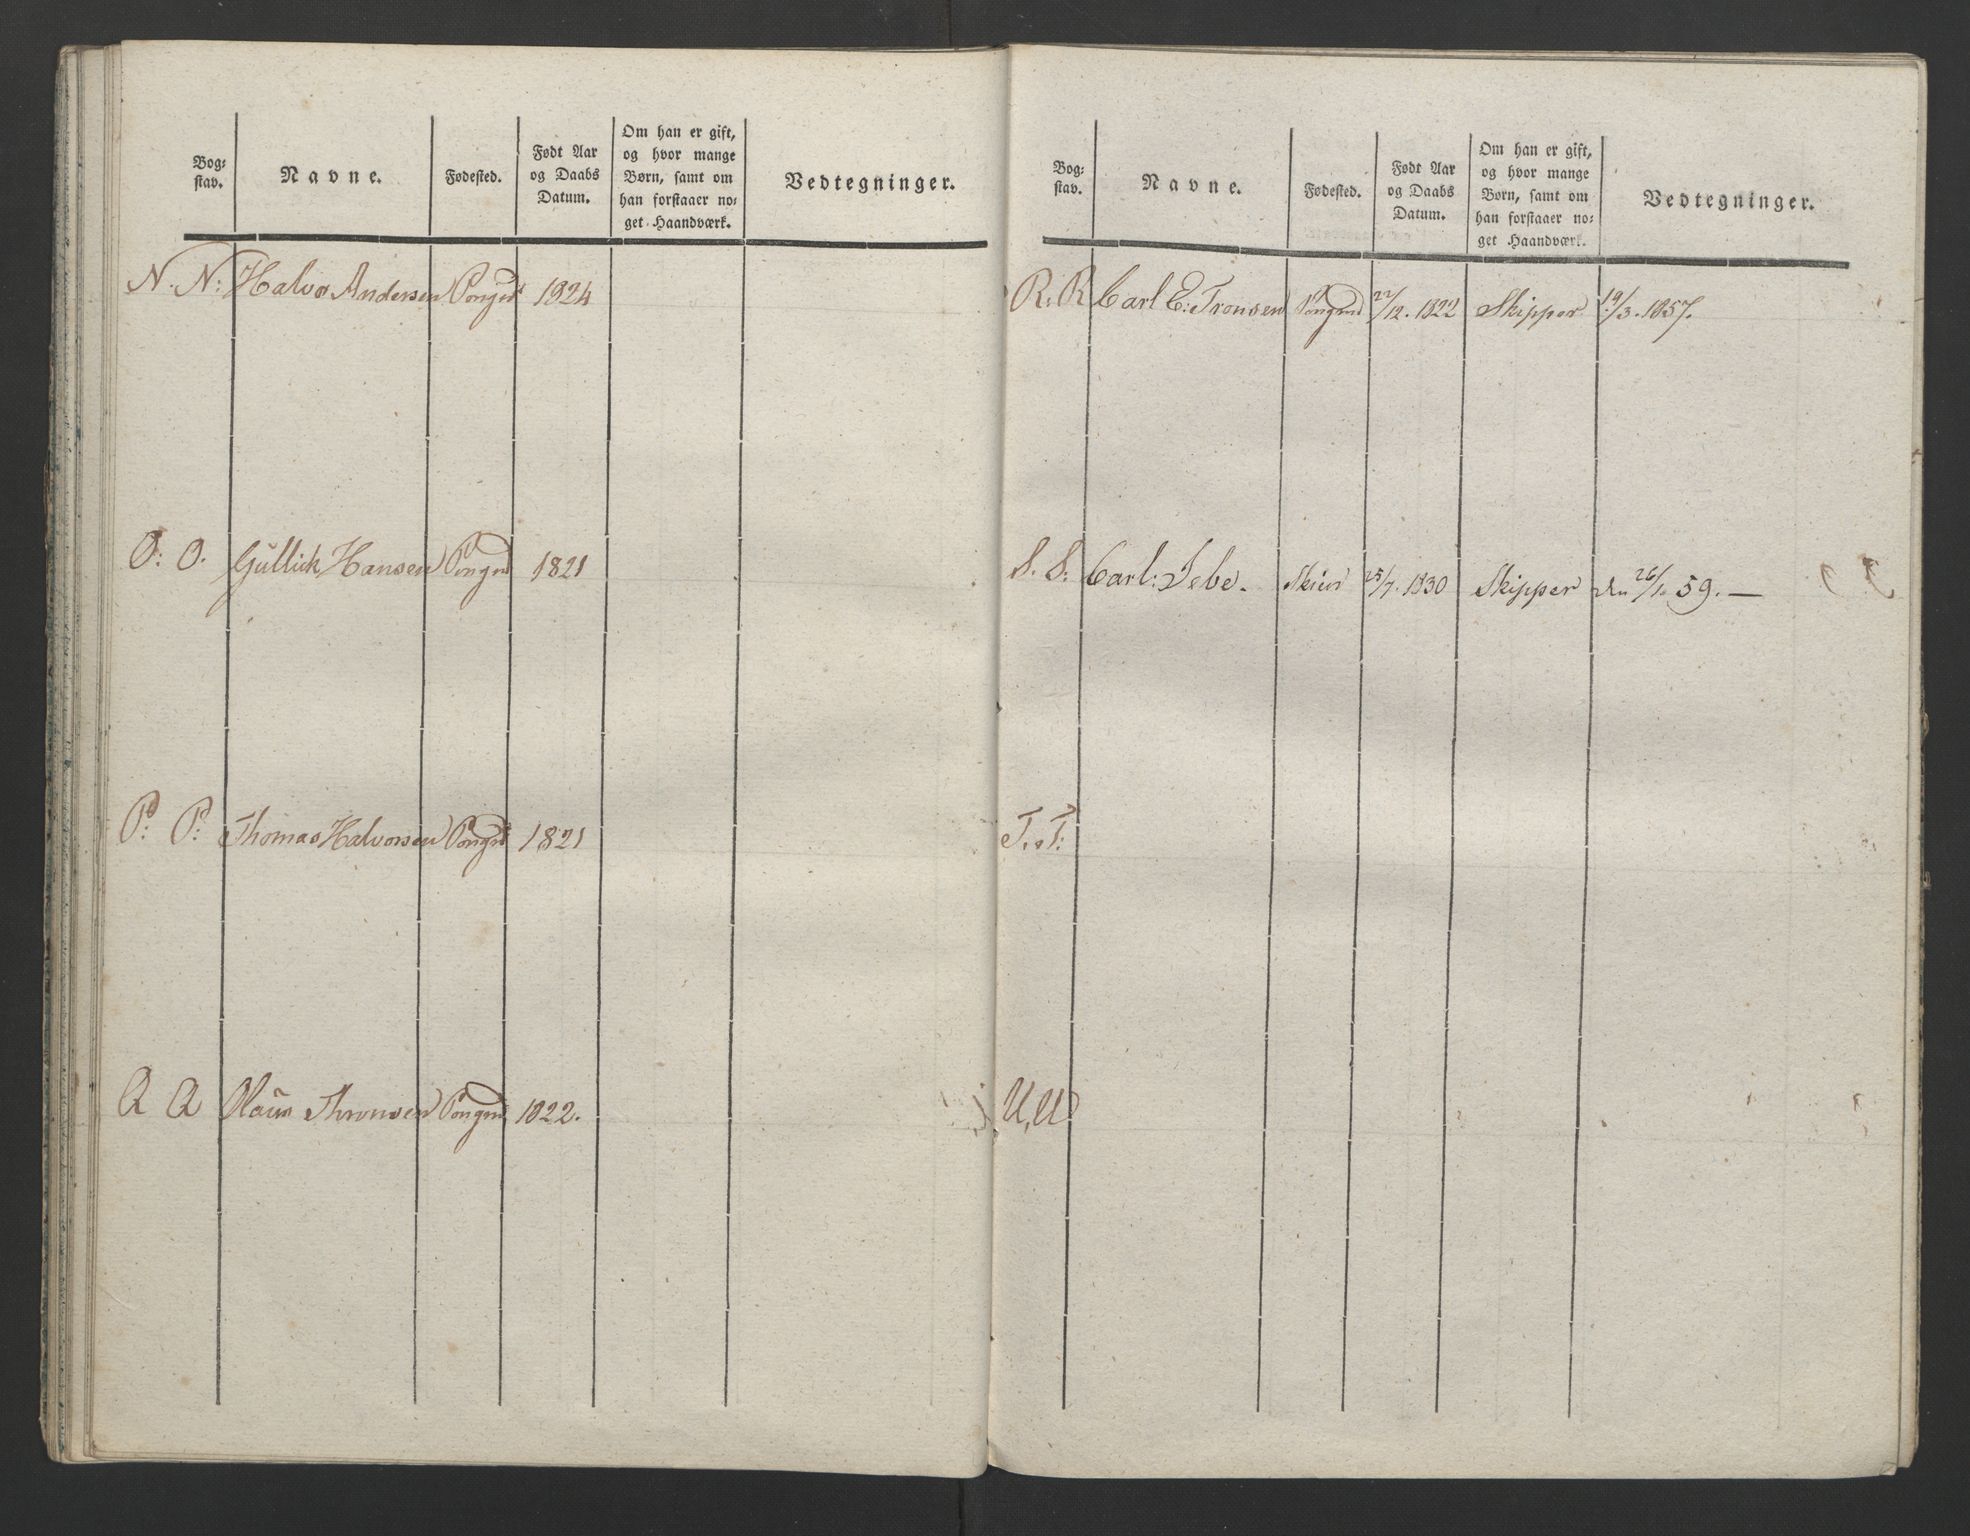 Bog=
stav.
Navne.
Fødested.
Født Aar
og Daabs
Datum.
Om han er gift,
og hvor mange
Børn, samt om
han forstaaer no=
get Haandværk.
Vedtegninger.
N. N: Halvor Andersen Porsgrd 1824
O: O. Gullick Hansen 1821
P: P: Thomas Halvorsen 1821
Q Q Olaus Thronsen 1822.
Bog=
stav.
Navne.
Fødested.
Født Aar
og Daabs
Datum.
Om han er gift,
og hvor mange
Børn, samt om
han forstaaer no=
get Haandværk.
Vedtegninger.
R: R Carl E: Tronsen 22/12. 1822 Skipper 19/3. 1857.
S. S: Carl: Jebe. Skien 25/7. 1830 Skipper den 26/1. 59. —
T. T:
U, U